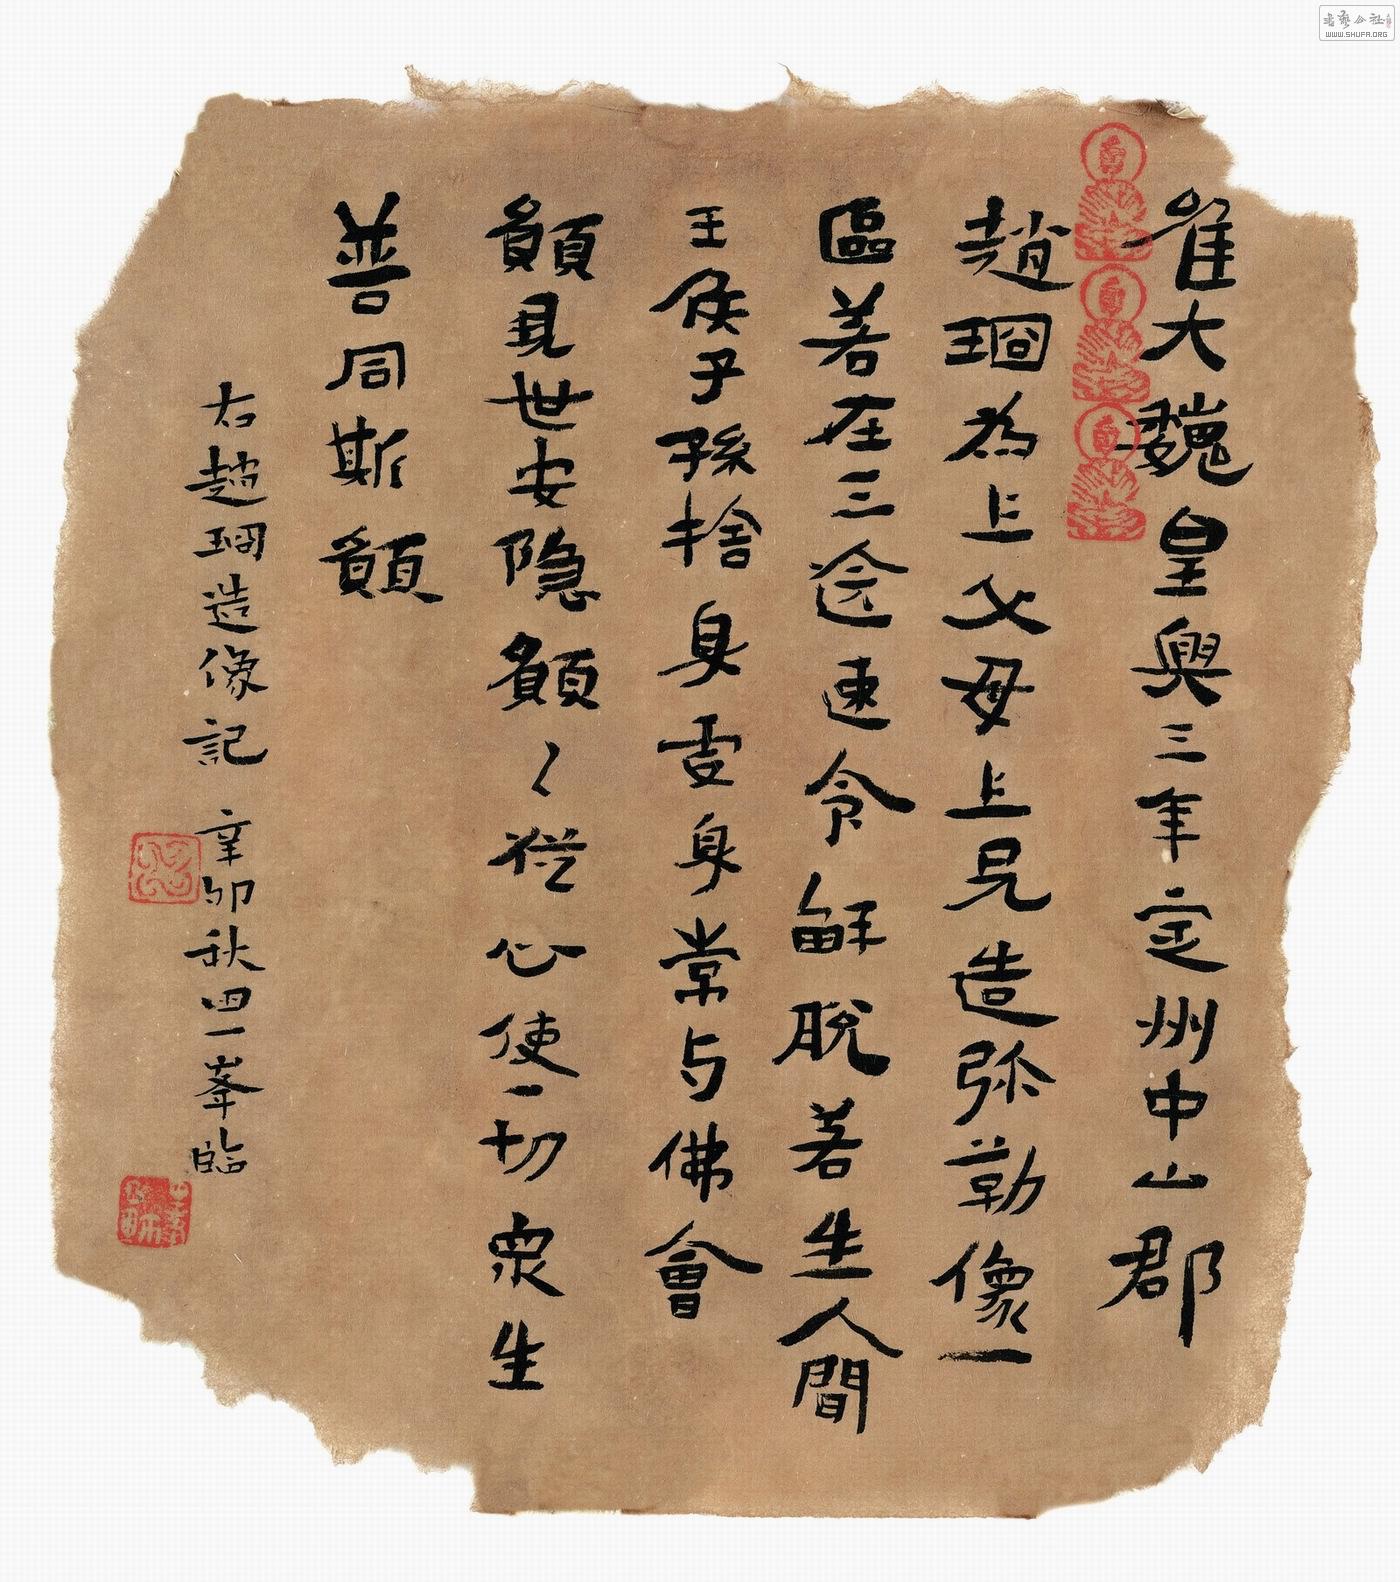 隹大魏皇興三年定州中山郡
趙琱為上父母上兄造弥勒像一
區若在三途速令解脫若生人間
王侯子孫捨身受身常与佛會
願見世安隐願〻從心使一切眾生
普同斯願
右趙琱造像記 辛卯秋四一峯臨
WWW.SHUFA.ORG